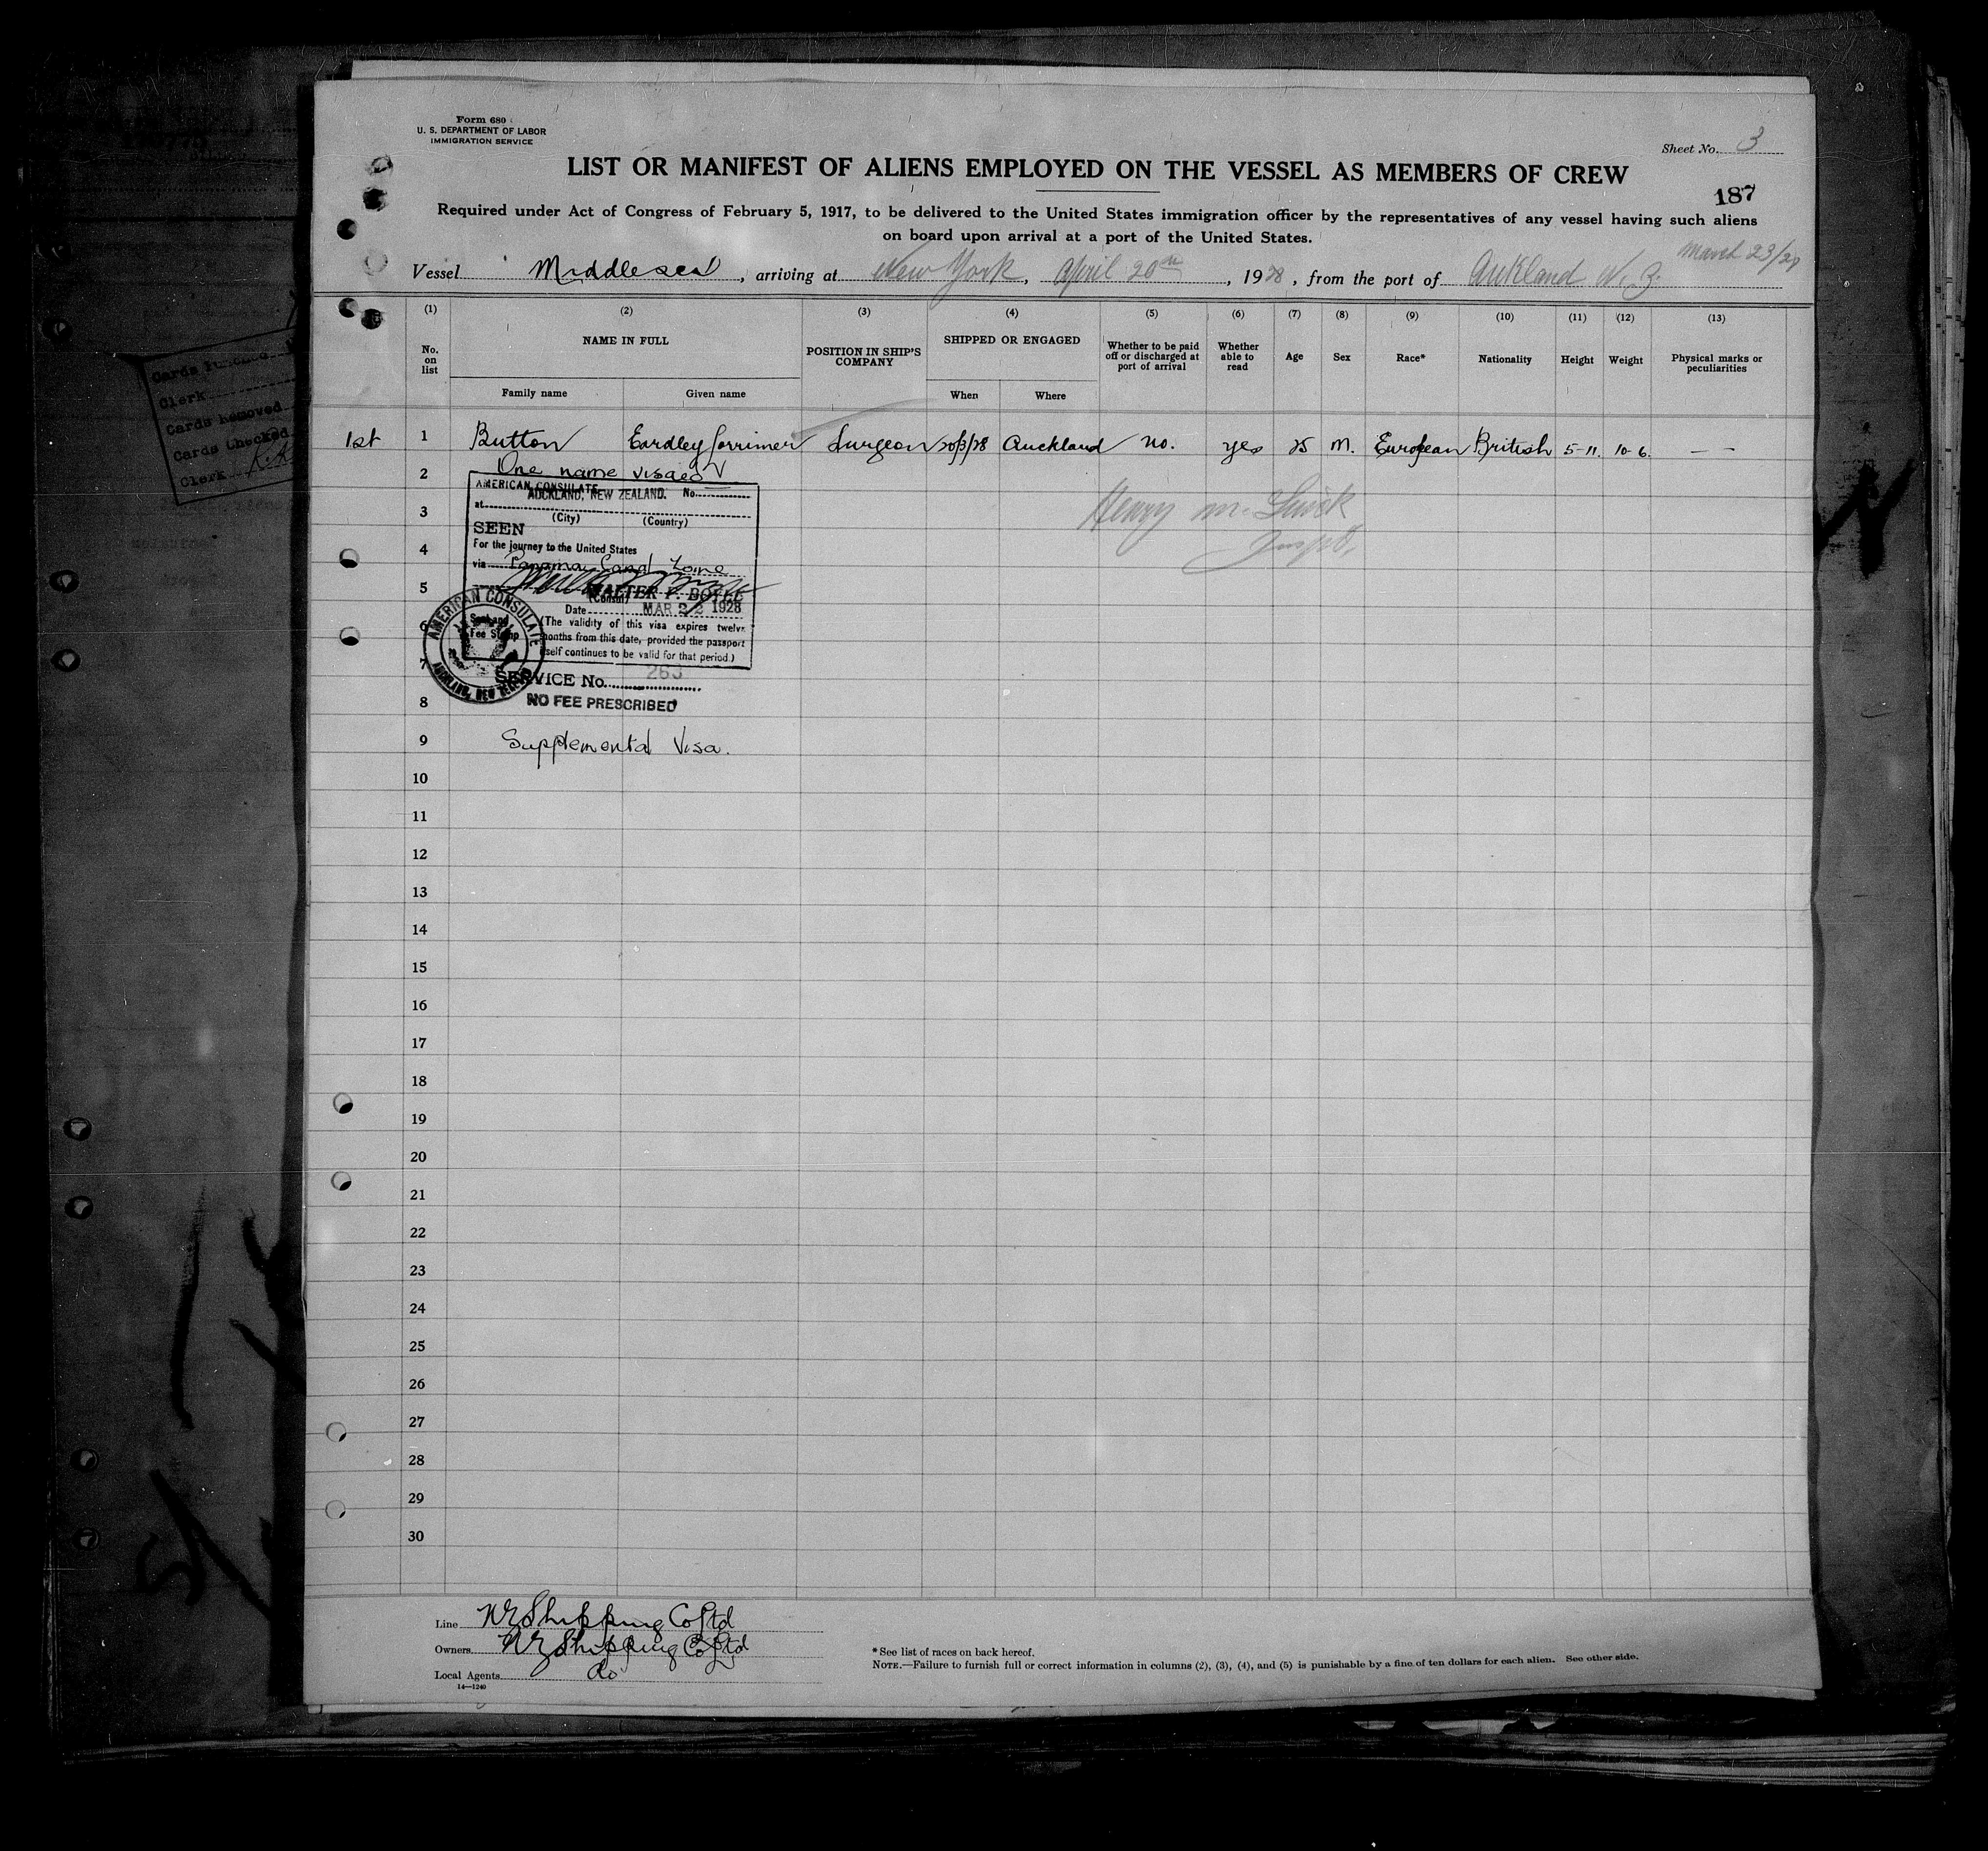 Form 680
U. S. DEPARTMENT OF LABOR
IMMIGRATION SERVICE
Sheet No. 3
LIST OR MANIFEST OF ALIENS EMPLOYED ON THE VESSEL AS MEMBERS OF CREW
187
Required under Act of Congress of February 5, 1917, to be delivered to the United States immigration officer by the representatives of any vessel having such aliens
on board upon arrival at a port of the United States.
March 23/28
Vessel Middlesex, arriving at New York, April 20th, 1928, from the port of Auckland N. Z.
(1) (2) (3) (4) (5) (6) (7) (8) (9) (10) (11) (12) (13)
No. on list NAME IN FULL POSITION IN SHIP'S COMPANY SHIPPED OR ENGAGED Whether to be paid off or discharged at port of arrival Whether able to read Age Sex Race* Nationality Height Weight Physical marks or peculiarities
Family name Given name When Where
1st 1 Button Eardley Lorrimer Surgeon 20/3/28 Auckland no. yes 25 M. European British 5-11. 10-6. — —
2 One name visaed
AMERICAN CONSULATE
AUCKLAND, NEW ZEALAND. No.
at
3 (City) (Country)
Henry M.
SEEN
4 For the journey to the United States
Insptr.
via Panama Canal Zone
5 WALTER F. BOYLE
(Consul)
Date MAR 22 1928
6 (The validity of this visa expires twelve
months from this date, provided the passport
itself continues to be valid for that period)
Seal and
Fee Stamp
AMERICAN CONSULATE
AUCKLAND, NEW ZEALAND
7 SERVICE No. 263
8 NO FEE PRESCRIBED
9 Supplemental Visa.
10
11
12
13
14
15
16
17
18
19
20
21
22
23
24
25
26
27
28
29
30
Line NZ Shipping Co Ltd
Owners NZ Shipping Co Ltd
Local Agents do
14—1240
* See list of races on back hereof.
NOTE.—Failure to furnish full or correct information in columns (2), (3), (4), and (5) is punishable by a fine of ten dollars for each alien. See other side.
Cards Punched
Clerk
Cards Removed
Cards Checked
Clerk